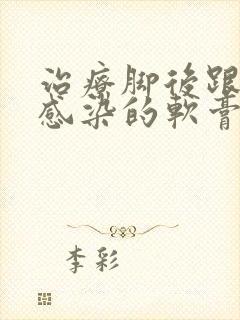 治療脚後跟
感染的軟膏
李彩